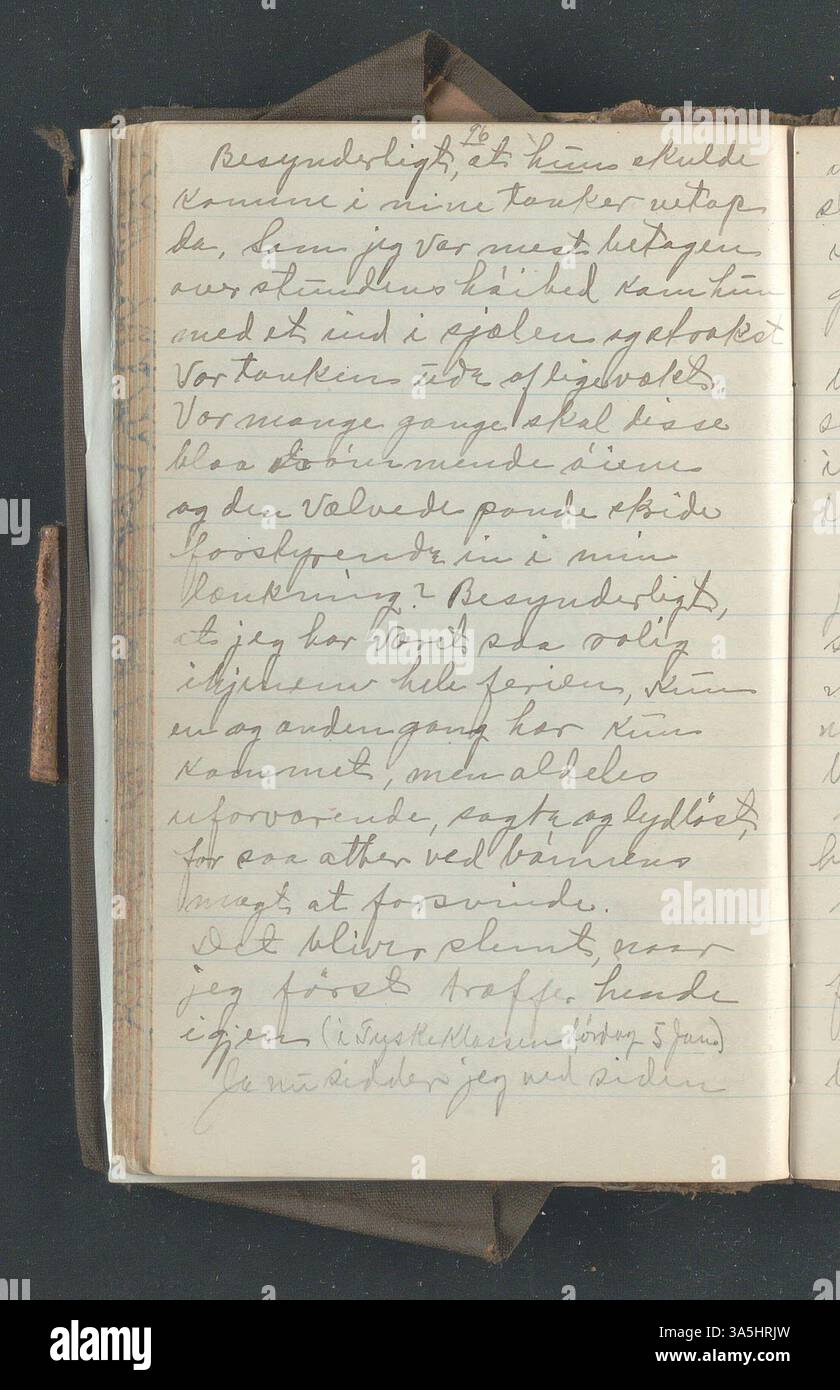 96
Besynderligt, at hun skulde
komme i mine tanker netop
da, som jeg var mest betagen
over stundens høihed kam hun
med et ind i sjælen og strakst
var tanken ude af ligevækt.
Vor mange gange skal disse
blaa drømmende øiene
og den vælvede pande skride
forstyrende in i min
tænkning? Besynderligt,
at jeg har været saa rolig
igjenem hele ferien, kun
en og anden gang har hun
kommet, men aldeles
uforvarende, sagte og lydløst,
for saa atter ved bønnens
magt at forsvinde.
Det bliver slemt, naar
jeg først træffer hende
igjen (i Tyske Klassen lørdag 5 Jan)
Ja nu sidder jeg ved siden
alamy
Image ID: A35HRJW
www.alamy.com